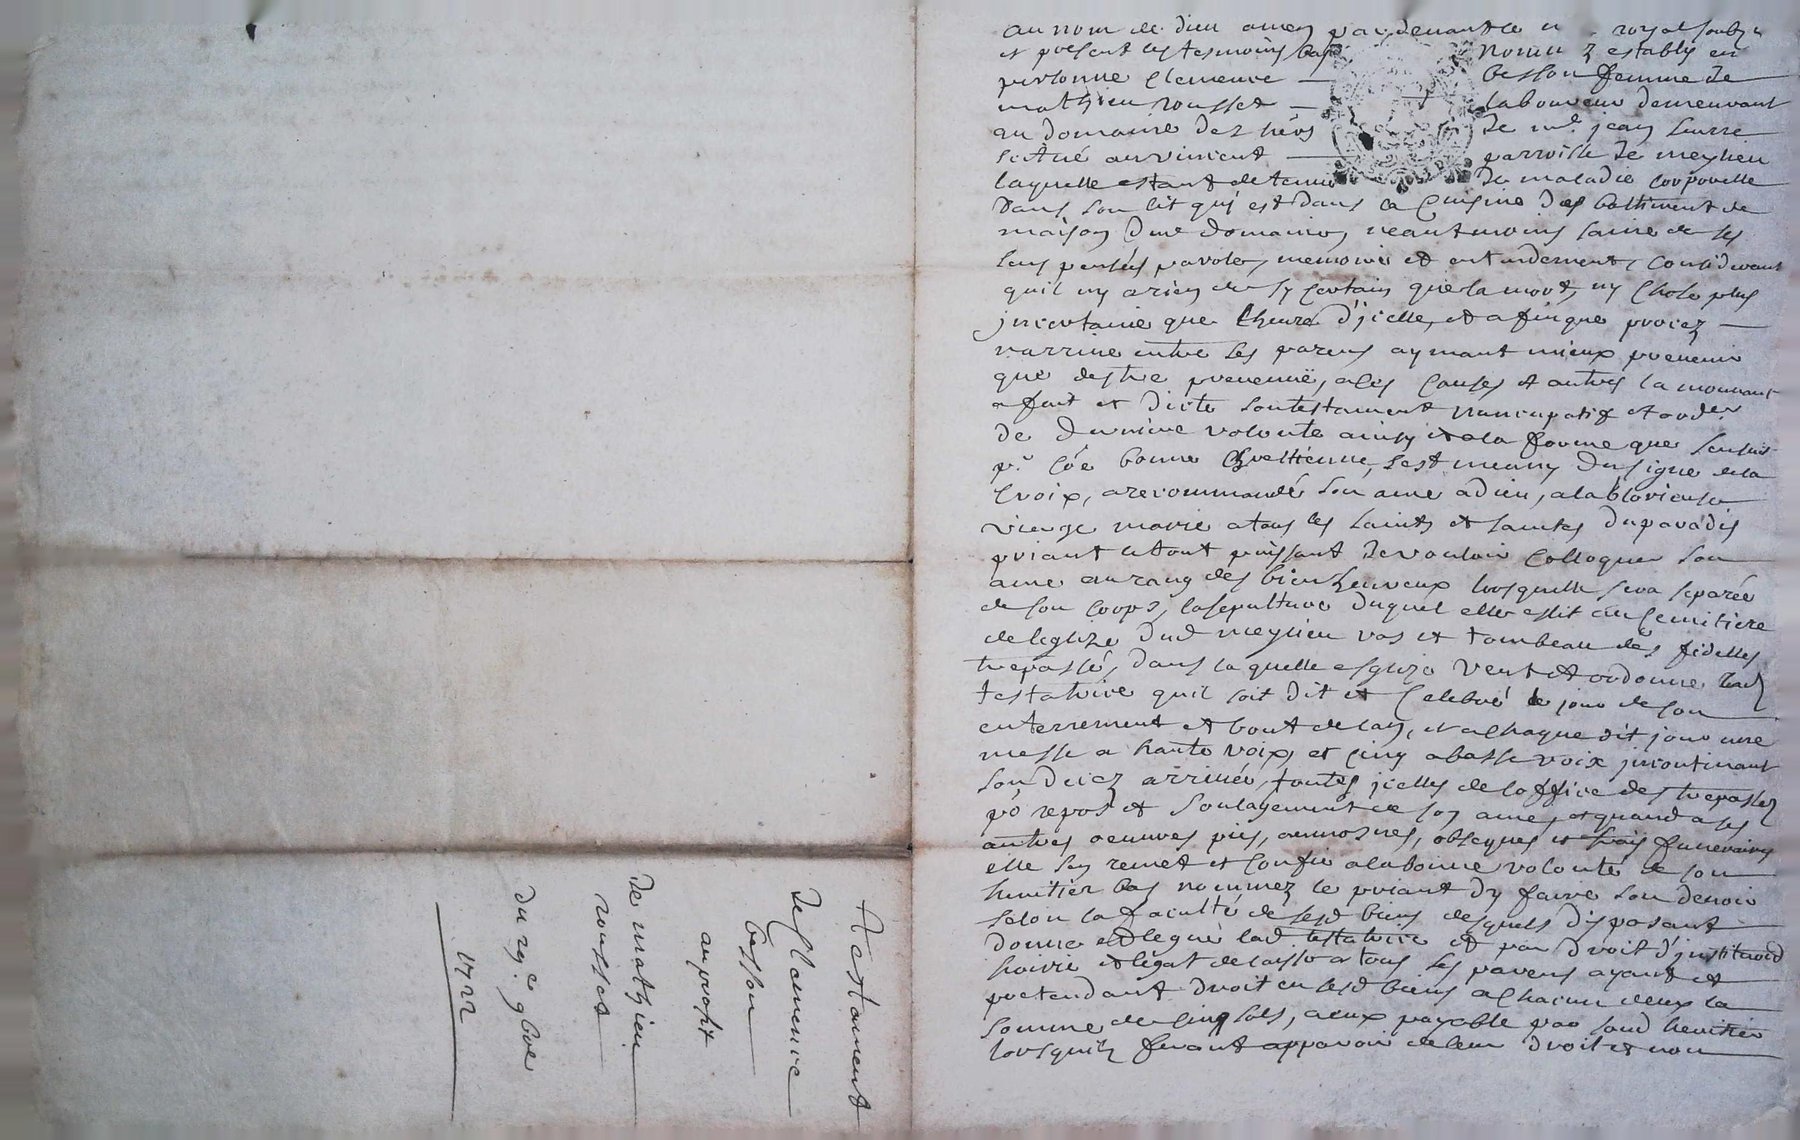 au nom de dieu amen par devant le n royal soubz.
et present les tesmoins bas nommez establis en
personne clemence besson femme de
mathieu rousset laboureur demeurant
au domaine des hers de me. jean
scitué au vincent parroisse de meylieu
laquelle estant detenue de maladie corporelle
dans son lit quj est dans la cuisine des battiment de
maison dud domaine, neantmoins saine de ses
sens pensées parole, memoire et entendement, considerant
quil ny a rien de sy certain que la mort, ny chose plus
jncertaine que lheure d'jcelle, et afin que procez
narrive entre ses parens aymant mieux prevenir
que destre prevenuë, a ces causes et autres la mouvant
a fait et dicté son testament nuncupatif et ordce
de derniere volonte ainsy et a la forme que sensuit
pr. cōe bonne chrettienne, sest munny du signe de la
croix, a recommandé son ame a dieu, a la glorieuse
vierge marie a tous les saints et saintes du paradis
priant le tout puissant de vouloir colloquer son
ame au rang des bienheureux lorsquelle sera separée
de son corps, la sepulture duquel elle eslit au cemitiere
de leglize dud meylieu vas et tombeau des fidelles
trepassés, dans laquelle esglize veut et ordonne lad
testatrice quil soit dit et celebré le jour de son
enterrement et bout de lan, et a chaque dit jour une
messe a haute voix et cinq a basse voix jncontinant
son decez arrivée, toutes jcelles de loffice des trepassez
pō repos et soulagement de son ame, et quand a ses
autres oeuvres pies, aumosnes, obseques et frais funeraires
elle sen remet et confie a la bonne volonté de son
heritier bas nommez le priant dy faire son devoir
selon la faculté de sesd biens desquels disposant
donne et legue lad testatrice et par droit d'jnstitu͞on
hoirie et legat delaisse a tous ses parens ayant et
pretendant droit en sesd biens a chacun deux la
somme de cinq sols, a eux payable par sond heritier
lorsquilz feront apparoir de leur droit et non
testament
de clemence
besson
au profit
de mathieu
rousset
du 29e. 9bre
1722